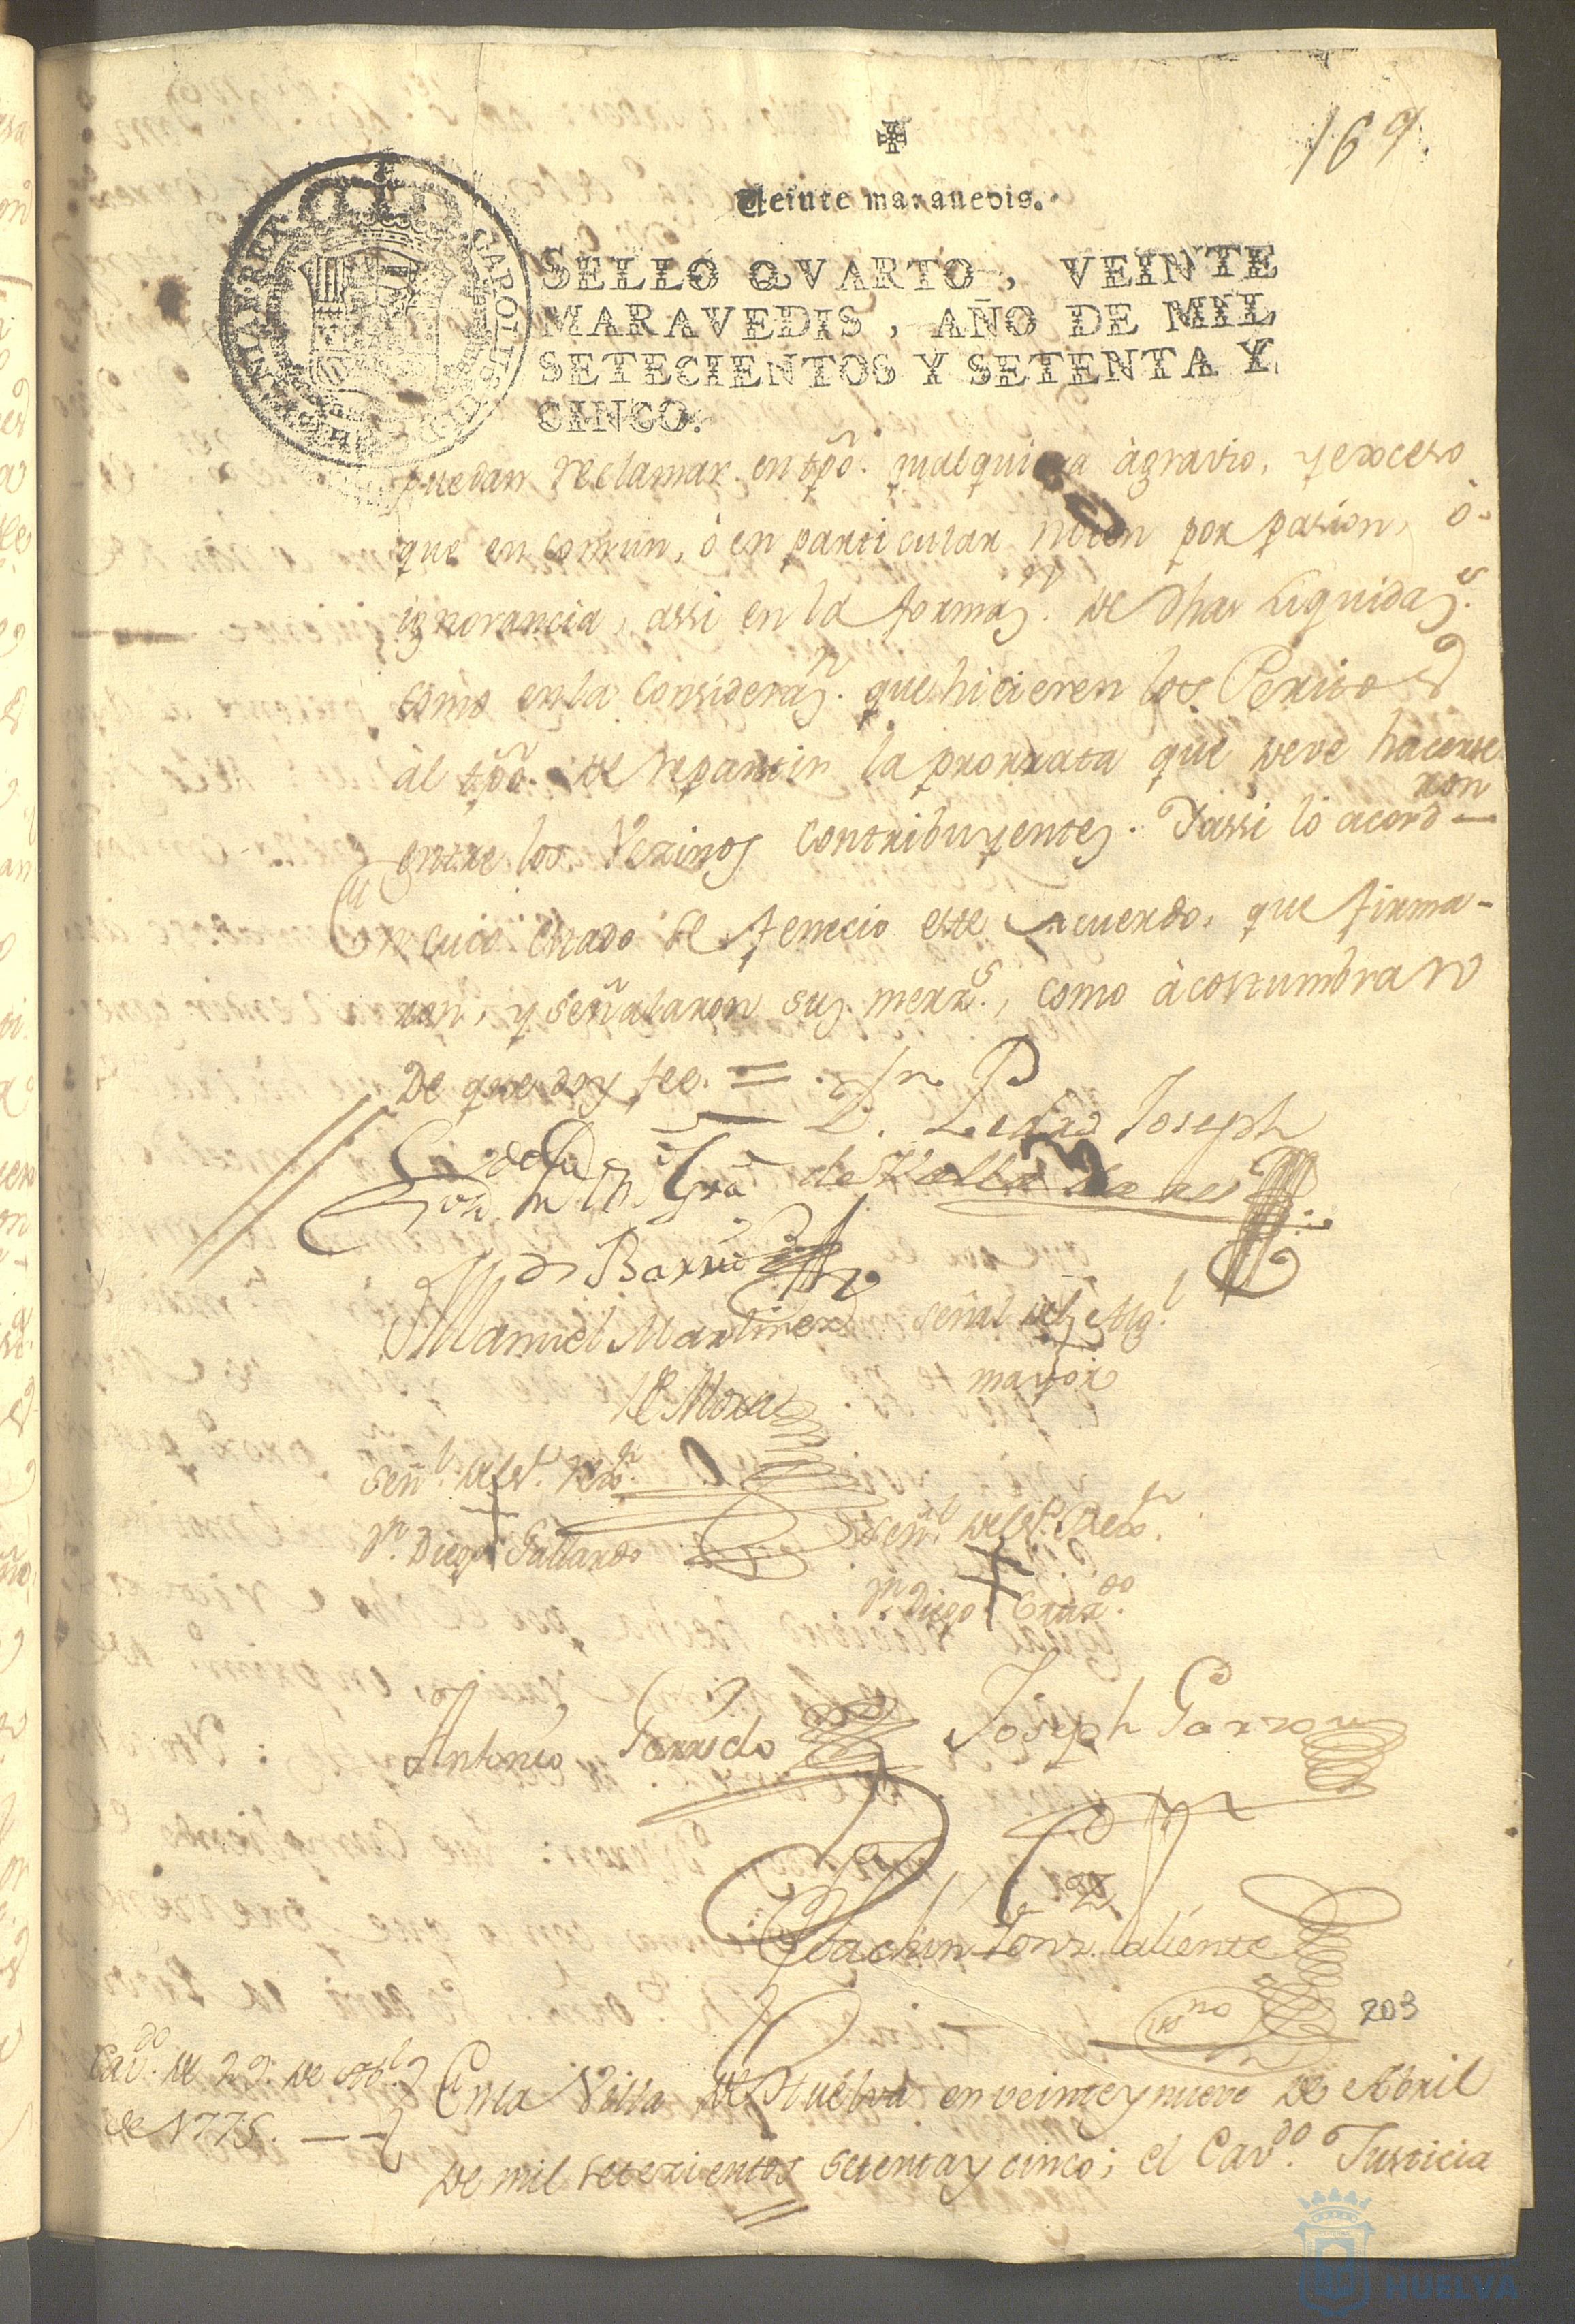 169
Veinte marauedis.
SELLO QVARTO, VEINTE
MARAVEDIS, AÑO DE MIL
SETECIENTOS Y SETENTA Y
CINCO.
CAROLUS III D G HISPANIAR REX
puedan reclamar en tpõ. qualquiera àgravio, y exceso
que en comun, ò en particular noten por pasion, ò
ignorancia, assi en la formaz.n de dhas Liquidaz.s
como en la consideraz.n que hicieren los Peritos
àl tpõ. de repartir la prorrata que deve hacerse
entre los Vezinos contribuyentes. Y assi lo acord
ron
En cuio estado se fenecio este Acuerdo, que firma-
ron, y señalaron sus merz.s, como àcostumbran
De que doy fee. =
D.n Pedro Joseph
de Valladares
de Barr
Manuel Martinez
de Mora
señal del Alg.l
mayor
señ.l del s.r Rex.r
D.n Diego Gallardo
señ.l del s.r Rex.r
D.n Diego
Antonio Garrido
Joseph Garzon
Joachin Gonz. aliente
ssno
203
Cav.do de 29. de Ab.l
de 1775.
En la Villa de Huelva en veinte y nueve de Abril
de mil setezientos setenta y cinco; el Cav.do Justicia
HUELVA